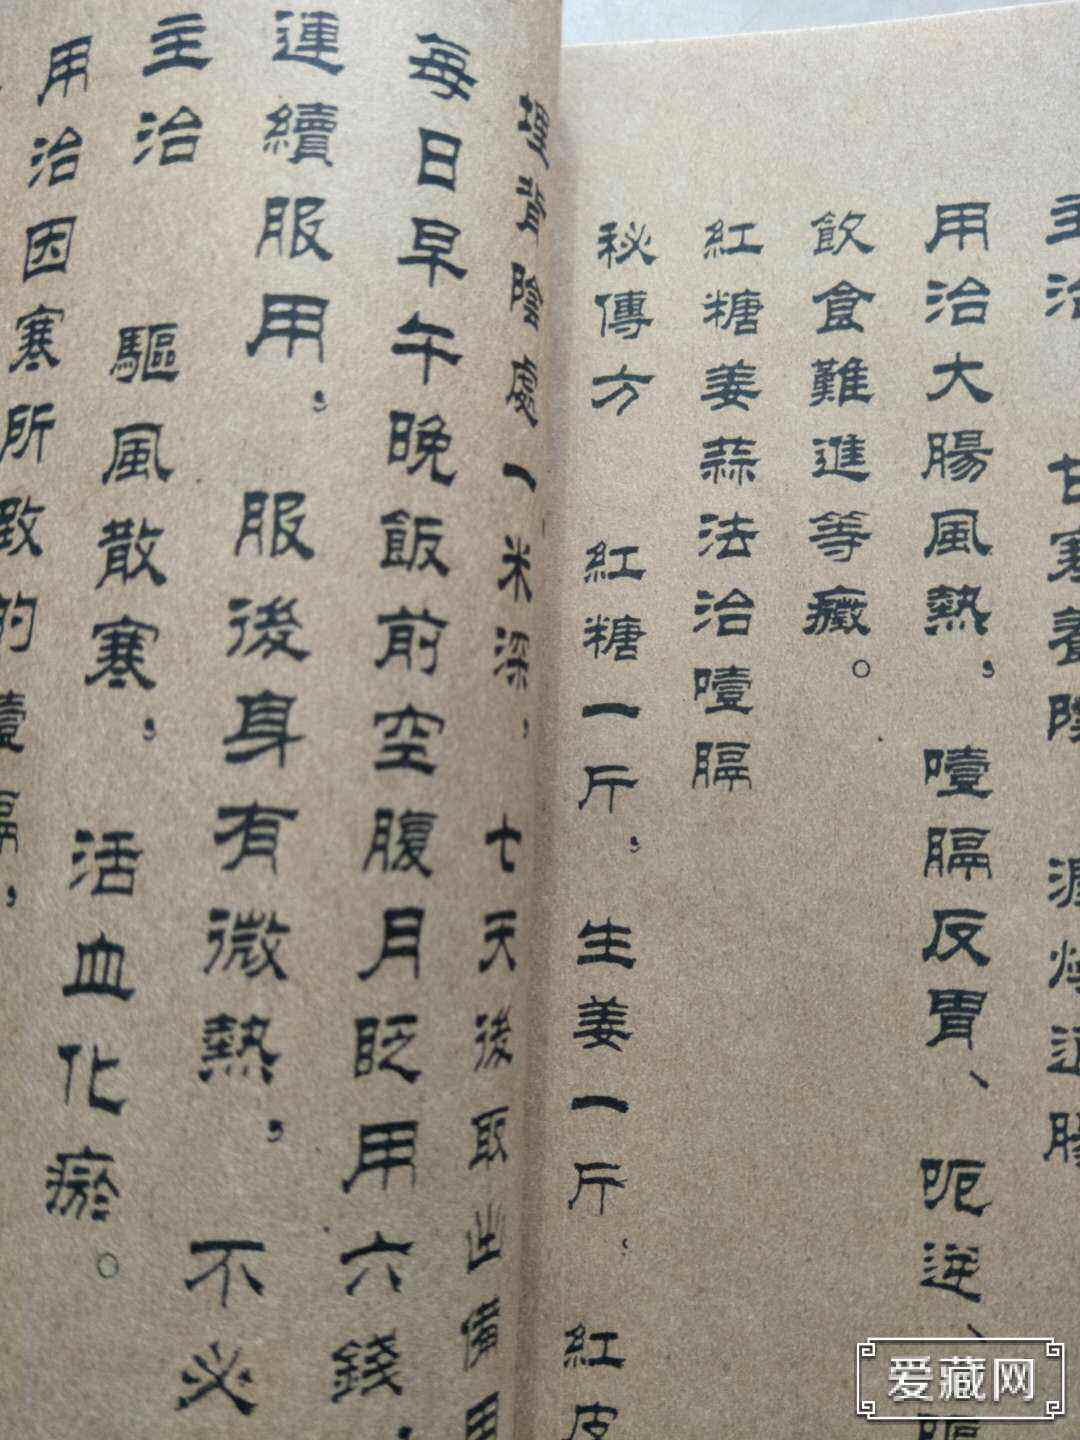 主治 甘寒養陰 燥通腸
用治大腸風熱，噎膈反胃、呃逆、
飲食難進等癥。
紅糖姜蒜法治噎膈
秘傳方 紅糖一斤，生姜一斤，紅皮
埋背陰處一米深，七天後取出備用
每日早午晚飯前空腹月眨用六錢，
連續服用，服後身有微熱，不必
主治 驅風散寒，活血化瘀。
用治因寒所致的噎膈，
爱藏网